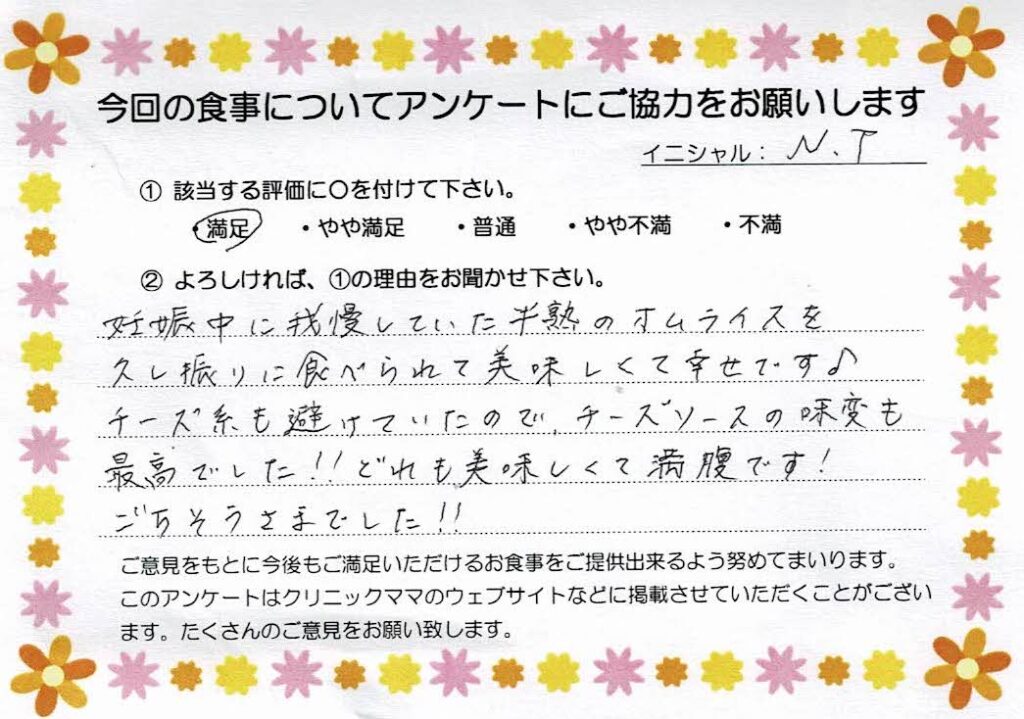 今回の食事についてアンケートにご協力をお願いします
イニシャル： N.T
① 該当する評価に〇を付けて下さい。
・満足 ・やや満足 ・普通 ・やや不満 ・不満
② よろしければ、①の理由をお聞かせ下さい。
妊娠中に我慢していた半熟のオムライスを
久し振りに食べられて美味しくて幸せです♪
チーズ系も避けていたので、チーズソースの味変も
最高でした!!どれも美味しくて満腹です!
ごちそうさまでした!!
ご意見をもとに今後もご満足いただけるお食事をご提供出来るよう努めてまいります。
このアンケートはクリニックママのウェブサイトなどに掲載させていただくことがござい
ます。たくさんのご意見をお願い致します。